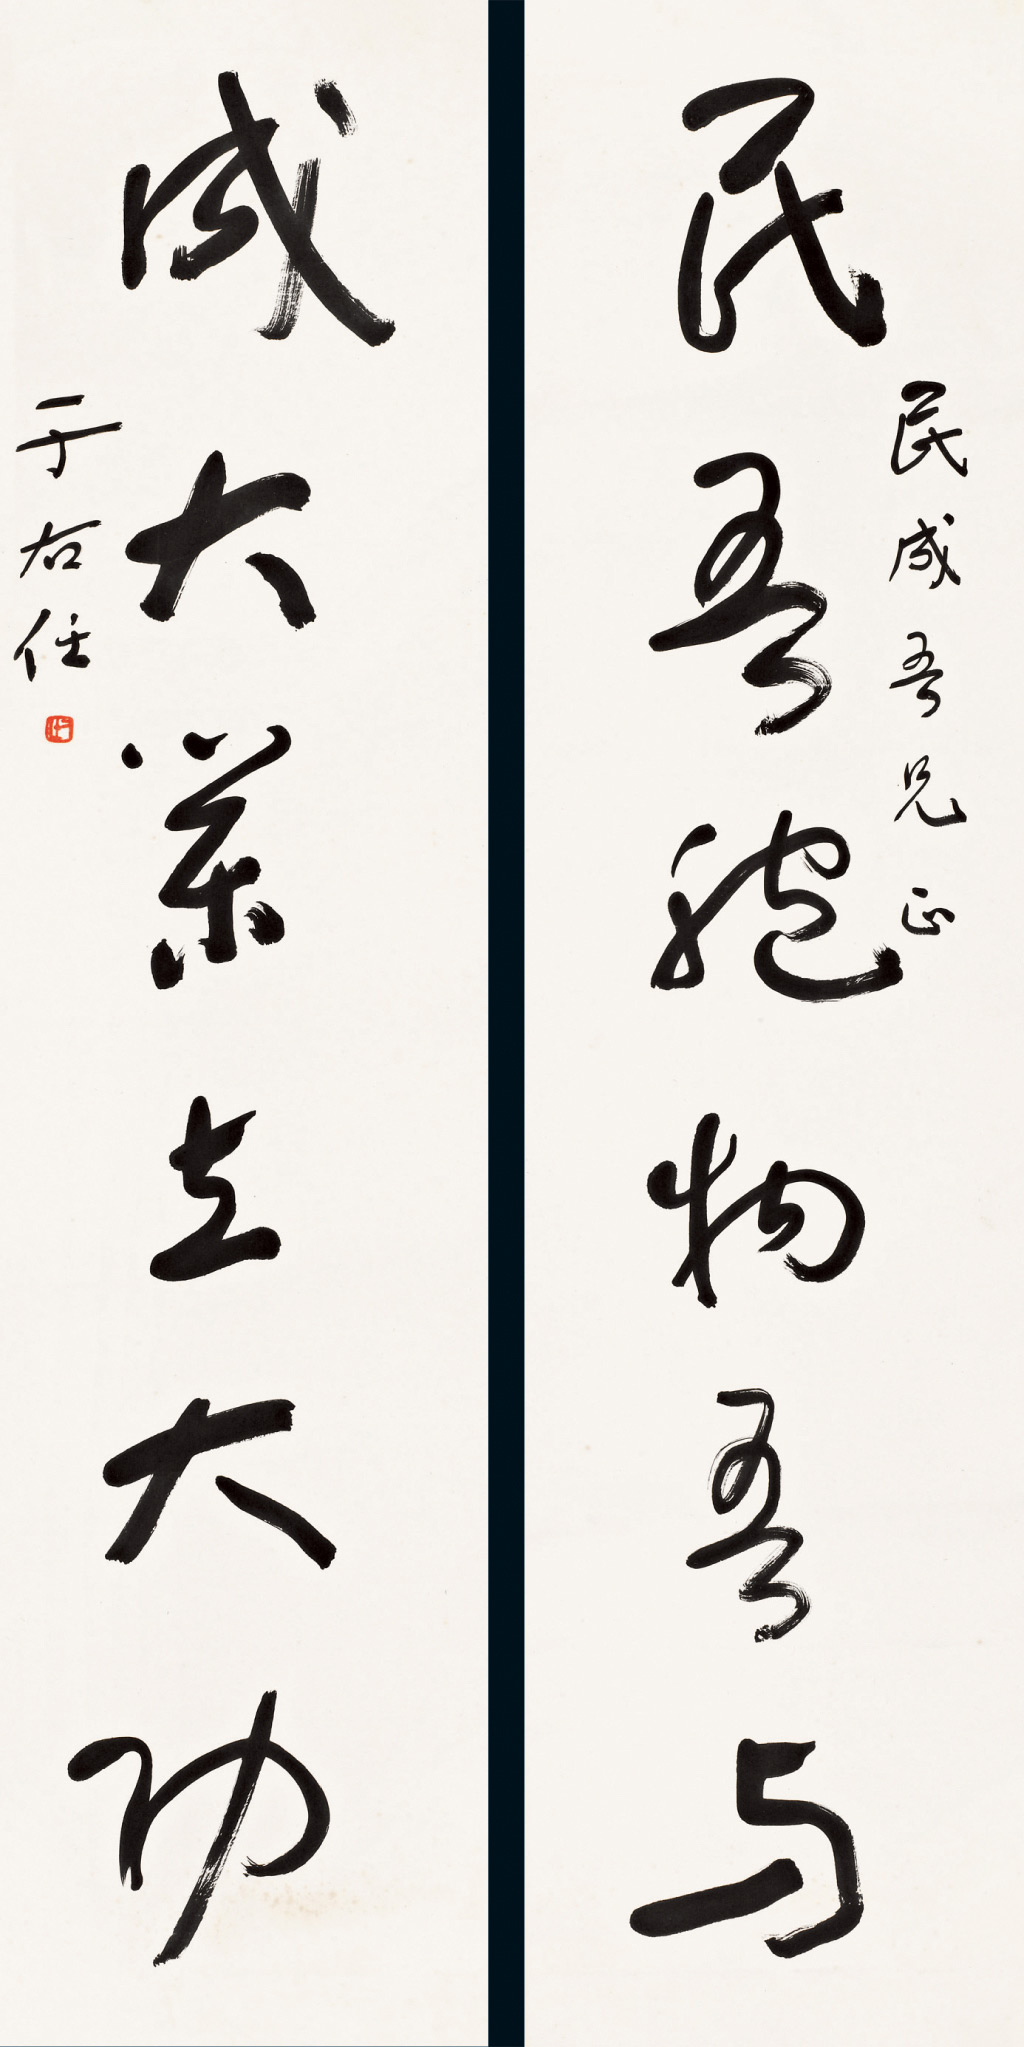 民吾胞物吾与
民成吾兄正
成大業立大功
于右任